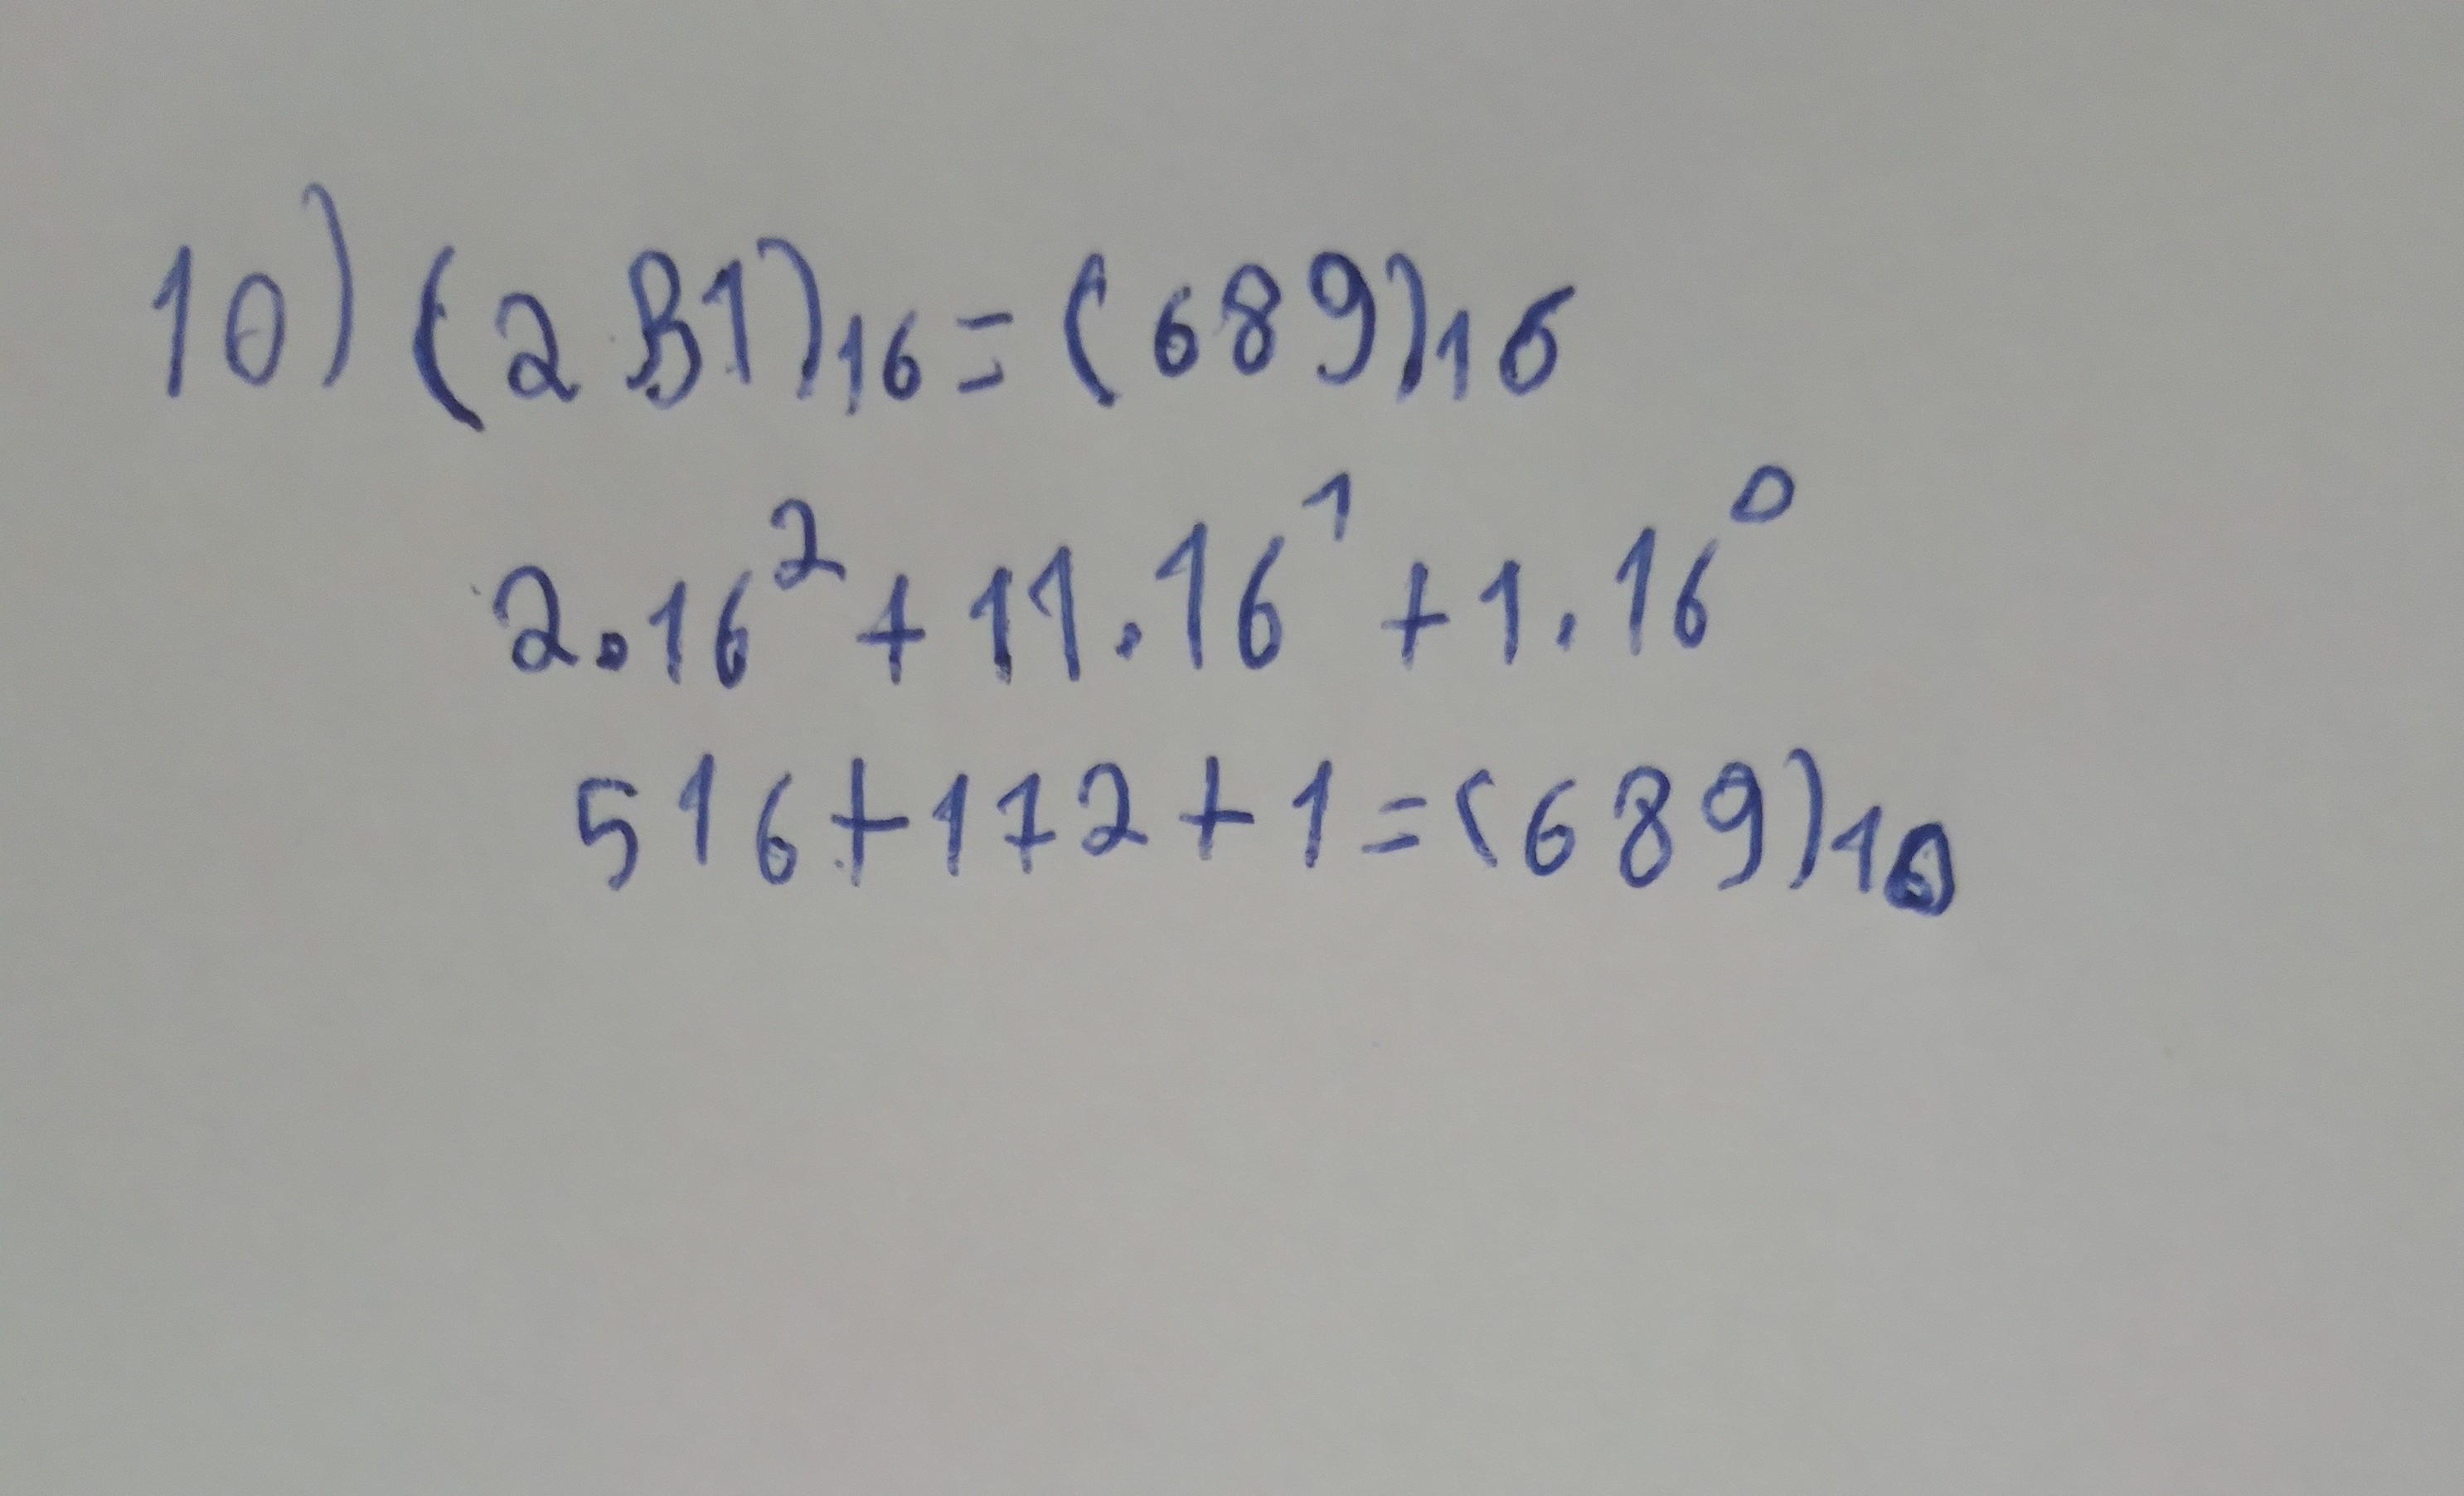 10) (2B1)₁₆ = (689)₁₆
2.16² + 11.16¹ + 1.16⁰
516 + 172 + 1 = (689)₁₀